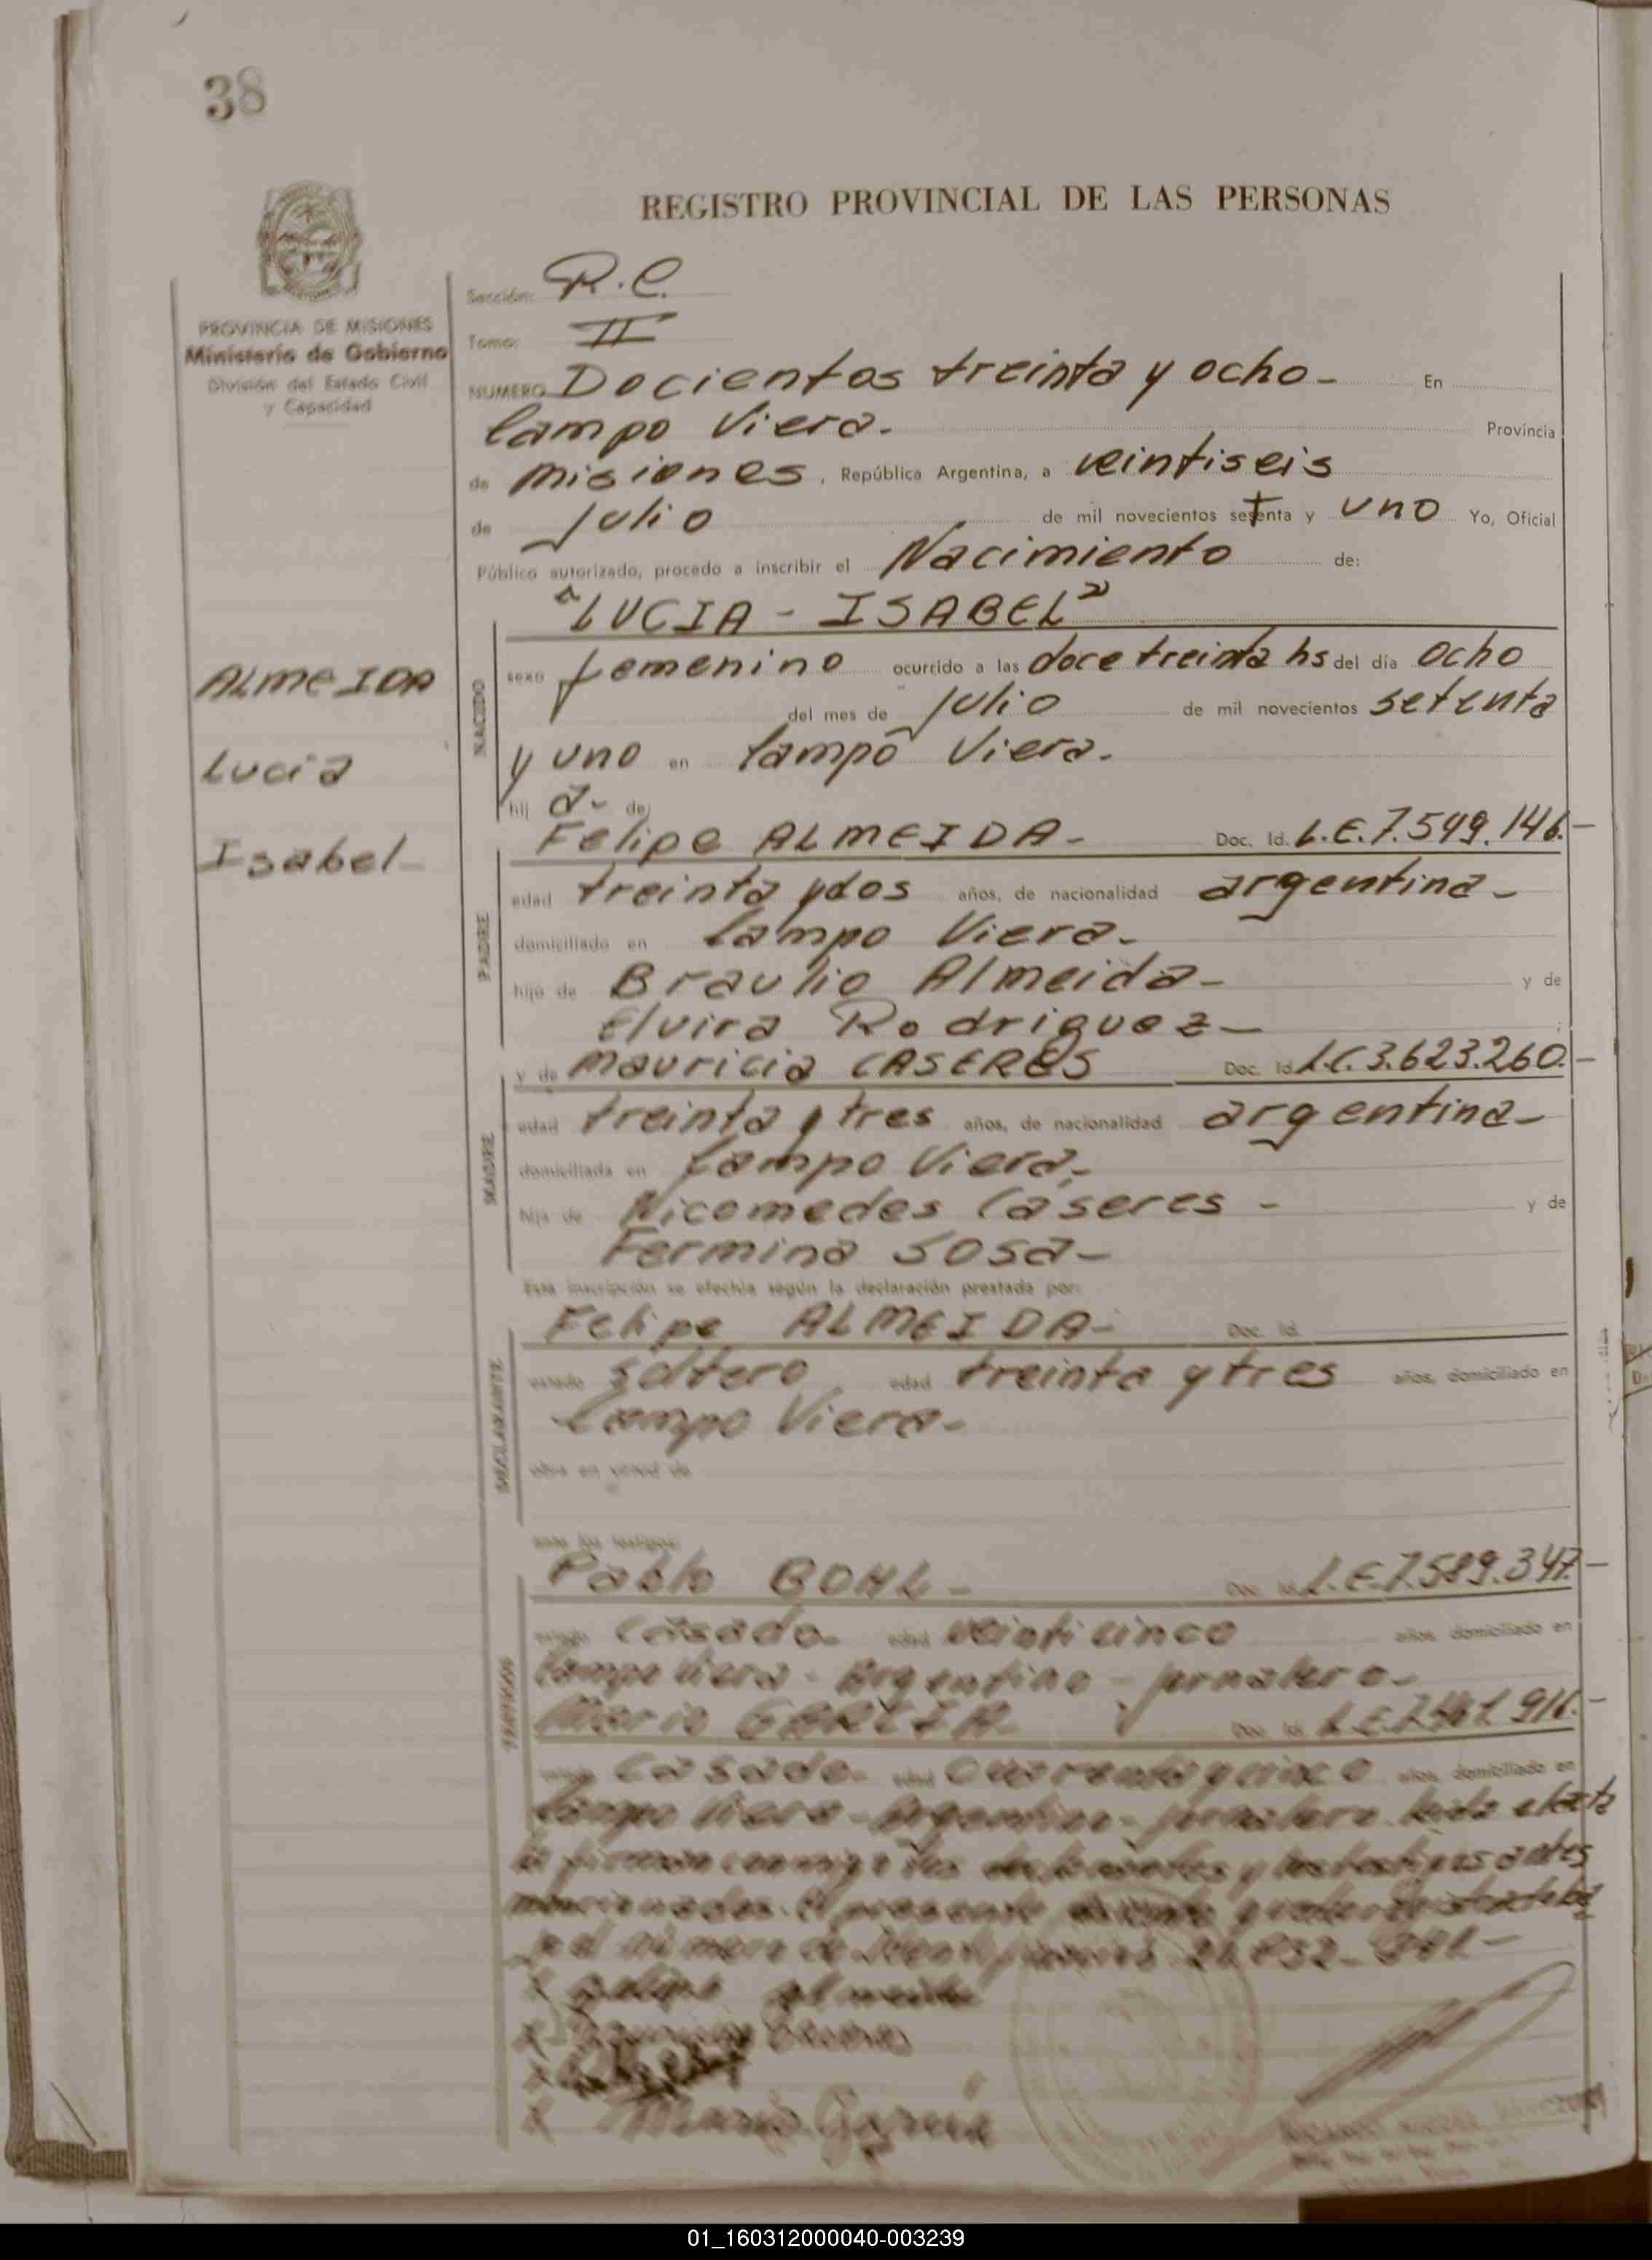 38
REGISTRO PROVINCIAL DE LAS PERSONAS
PROVINCIA DE MISIONES
Ministerio de Gobierno
División del Estado Civil
y Capacidad
Sección: R.C.
Tomo: II
NUMERO Docientos treinta y ocho - En
Campo Viera. Provincia
de Misiones, República Argentina, a veintiseis
de Julio de mil novecientos setenta y uno Yo, Oficial
Público autorizado, procedo a inscribir el Nacimiento de:
"LUCIA - ISABEL"
ALMEIDA
Lucia
Isabel
NACIDO
sexo femenino ocurrido a las doce treinta hs del día ocho
del mes de Julio de mil novecientos setenta
y uno en Campo Viera.
hij a- de:
PADRE
Felipe ALMEIDA- Doc. Id. L.E.7.549.146.-
edad treinta y dos años, de nacionalidad argentina-
domiciliado en Campo Viera-
hijo de Braulio Almeida- y de
Elvira Rodriguez-
MADRE
y de Mauricia CASERES Doc. Id. L.C.3.623.260.-
edad treinta y tres años, de nacionalidad argentina-
domiciliada en Campo Viera-
hija de Nicomedes Caseres - y de
Fermina Sosa-
Esta inscripción se efectúa según la declaración prestada por:
DECLARANTE
Felipe ALMEIDA- Doc. Id.
estado soltero edad treinta y tres años, domiciliado en
Campo Viera-
obra en virtud de
ante los testigos:
TESTIGOS
Pablo BOHL- Doc. Id. L.E.7.589.347.-
estado casado- edad veinticinco años, domiciliado en
Campo Viera - Argentino - jornalero-
Mario GARCIA Doc. Id. L.E.7.461.916.-
estado casado- edad cuarenta y cinco años, domiciliado en
Campo Viera - Argentino - jornalero. Leida el acta
la firman conmigo los declarantes y los testigos antes
mencionados. El presente
el número de
Felipe Almeida
Mario Garcia
01_160312000040-003239